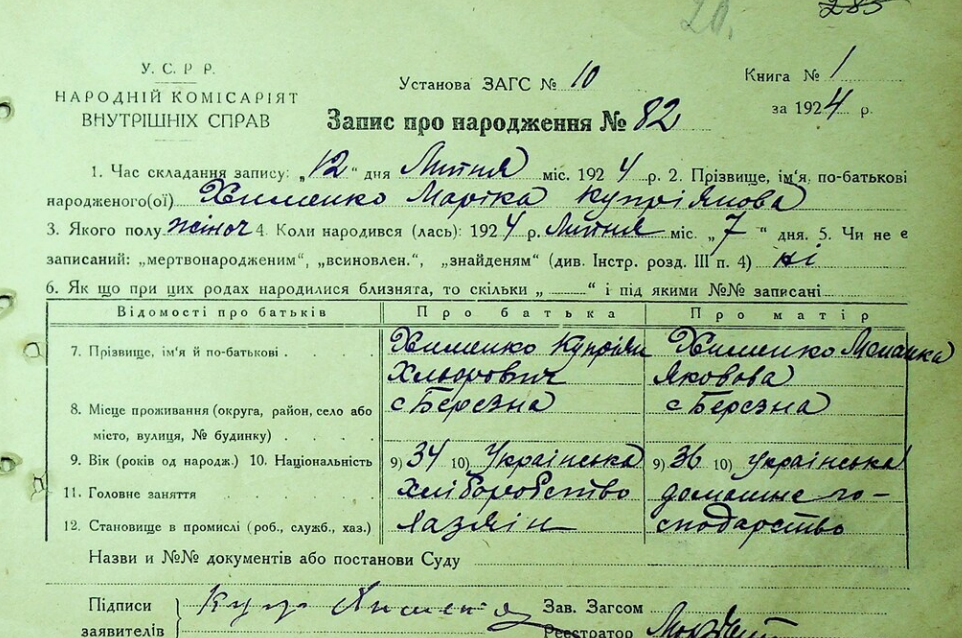 20.
285
У. С. Р Р.
НАРОДНІЙ КОМІСАРІЯТ
ВНУТРІШНІХ СПРАВ
Установа ЗАГС № 10
Книга № 1
за 1924 р.
Запис про народження № 82
1. Час складання запису: „12“ дня Лютня міс. 1924 р. 2. Прізвище, ім'я, по-батькові
народженого(ої) Хименко Марика Купріянова
3. Якого полу жіноч 4. Коли народився (лась): 1924 р. Лютня міс. „7“ дня. 5. Чи не є
записаний: „мертвонародженим“, „всиновлен.“, „знайденям“ (див. Інстр. розд. III п. 4) ні
6. Як що при цих родах народилися близнята, то скільки „ “ і під якими №№ записані
Відомості про батьків Про батька Про матір
7. Прізвище, ім'я й по-батькові Хименко Купріян Хименко Меланка
Яковова
8. Місце проживання (округа, район, село або с Березна с Березна
місто, вулиця, № будинку)
9. Вік (років од народж.) 10. Національність 9) 34 10) Українська 9) 36 10) українська
11. Головне заняття хліборобство домашнє го-
12. Становище в промислі (роб., служб., хаз.) хазяїн сподарство
Назви и №№ документів або постанови Суду
Підписи
заявителів
Зав. Загсом
Реєстратор